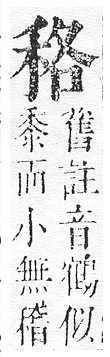 䅂
舊註音鶴似
黍而小無稭